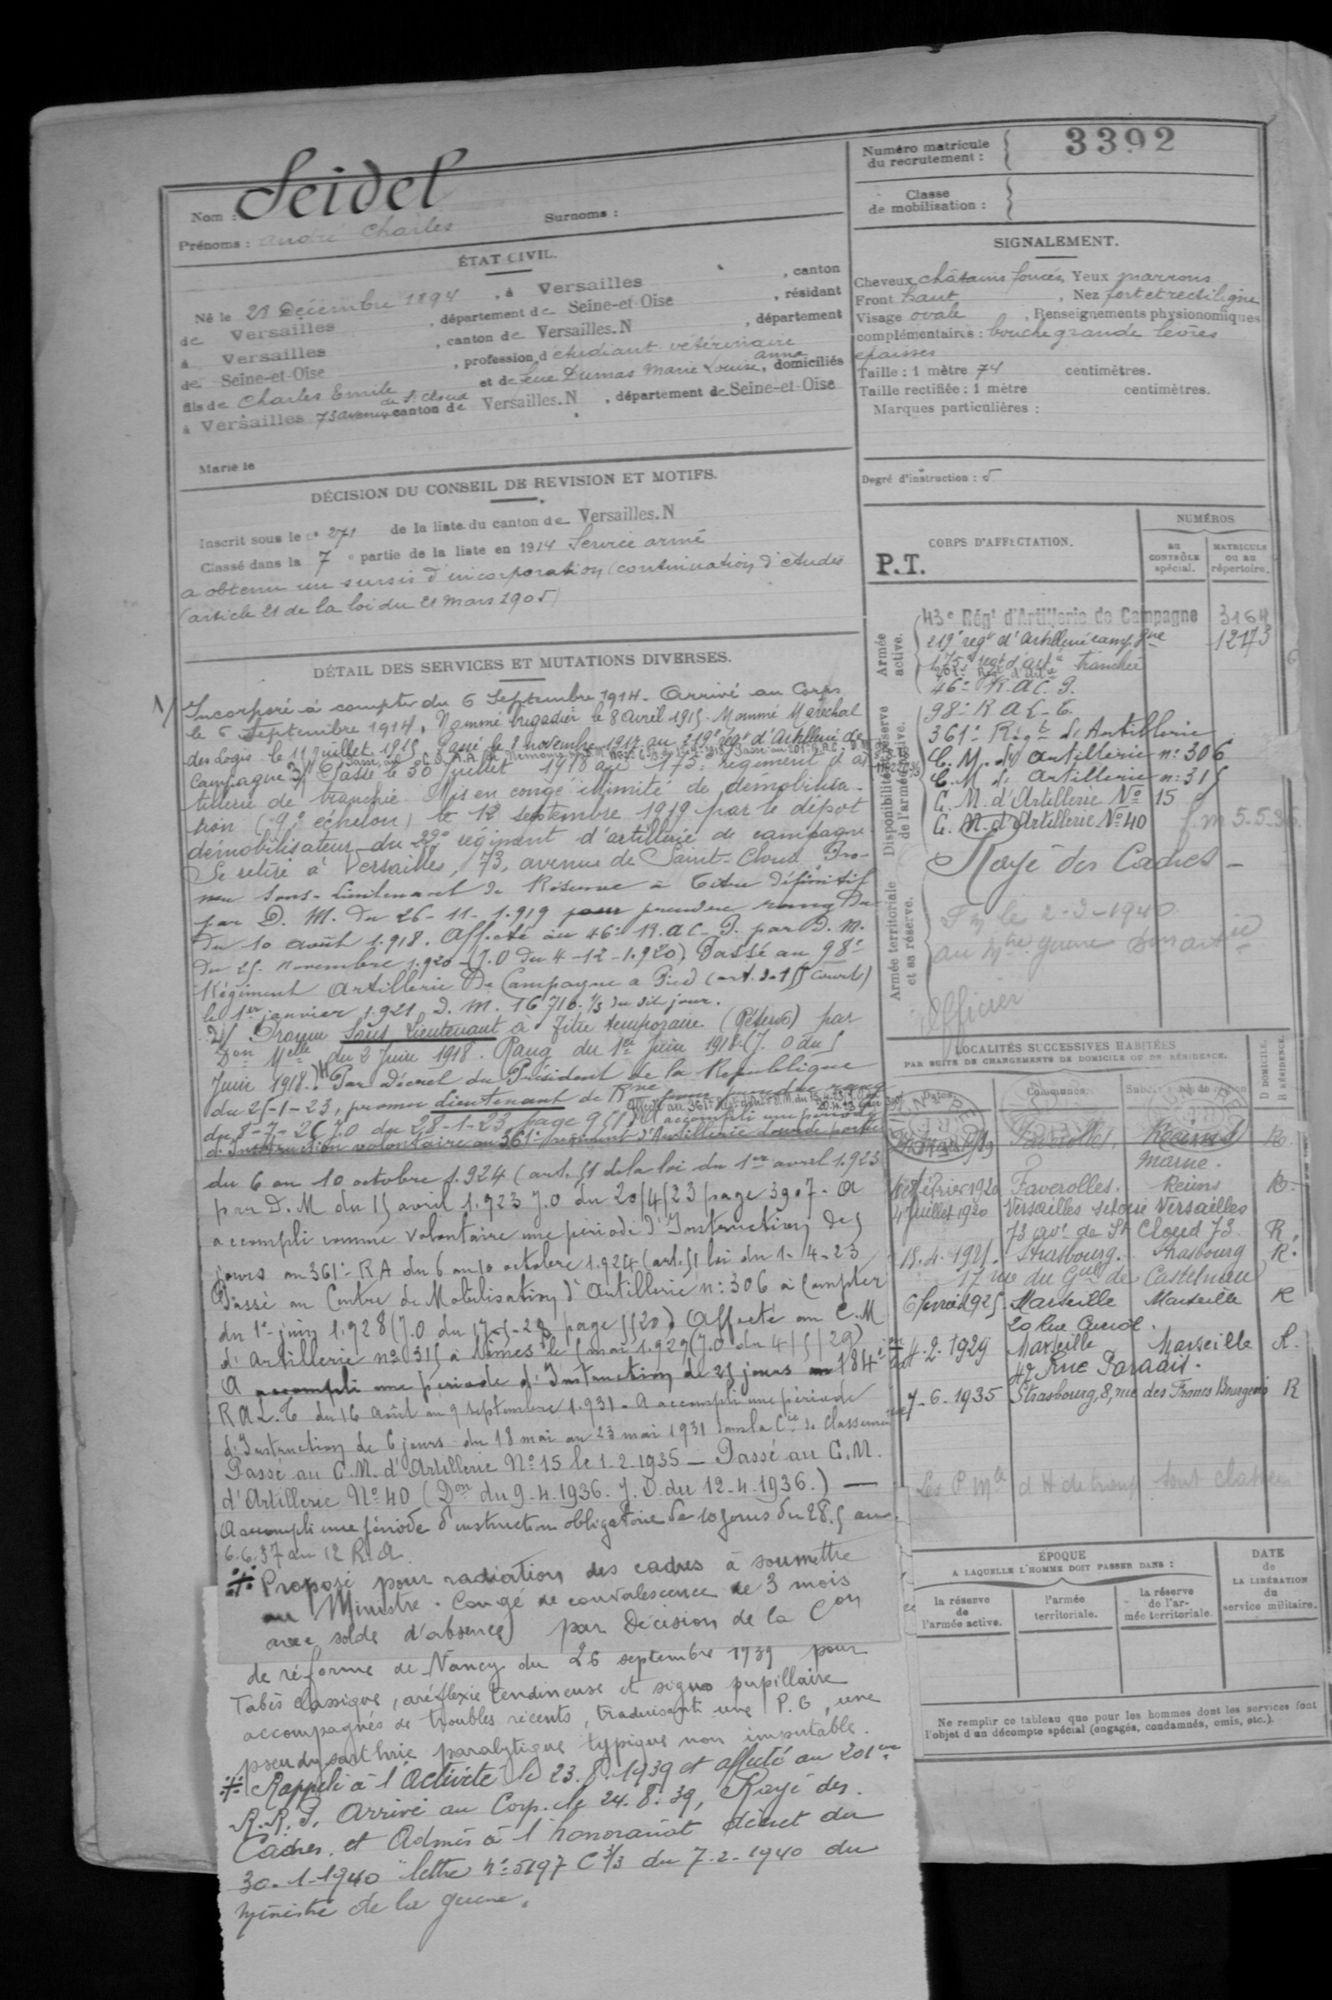 Nom : Seidel
Prénoms : André Charles Surnoms :
ÉTAT CIVIL.
Né le 28 Décembre 1894, à Versailles, canton
de Versailles, département de Seine-et-Oise, résidant
à Versailles, canton de Versailles.N, département
de Seine-et-Oise, profession d'etudiant vétérinaire
fils de Charles Emile et de feue Dumas Marie Louise Anna, domiciliés
à Versailles 73 avenue de St Cloud canton de Versailles.N, département de Seine-et-Oise
Marié le
DÉCISION DU CONSEIL DE REVISION ET MOTIFS.
Inscrit sous le n° 271 de la liste du canton de Versailles.N
Classé dans la 7e partie de la liste en 1914 Service armé
a obtenu un sursis d'incorporation (continuation d'études
(article 21 de la loi du 21 mars 1905)
DÉTAIL DES SERVICES ET MUTATIONS DIVERSES.
1/ Incorporé à compter du 6 Septembre 1914. Arrivé au Corps
le 6 Septembre 1914. Nommé brigadier le 8 Avril 1915. Nommé Maréchal
des Logis le 11 Juillet 1915. Passé le 8 novembre 1917 au 219e régt d'Artillerie de
Campagne. Passé le 30 Juillet 1918 au 175e régiment d'ar
tillerie de tranchée. Mis en congé illimité de démobilisa-
tion (9e échelon) le 12 septembre 1919 par le dépot
démobilisateur du 22e régiment d'artillerie de campagne.
Se retire à Versailles, 73, avenue de Saint-Cloud. Pro-
mu sous-Lieutenant de Réserve à titre définitif
par D. M. du 26-11-1919 pour prendre rang du
du 10 août 1.918. Affecté au 46e R.A.C.P. par D. M.
du 25 novembre 1.920 (J.O du 4-12-1.920) Passé au 98e
Régiment Artillerie De Campagne à Pied
le 1er janvier 1.921 D. M. 16710. 1/3 du dit jour.
2/ Promu Sous Lieutenant à titre temporaire (Réserve) par
Don Melle du 2 Juin 1918. Rang du 1er Juin 1918 (J. O du 5
Juin 1918.) Par Décret du Président de la République
du 25-1-23, promu Lieutenant de Rve pour prendre rang
du 8-7-20 J.O du 28-1-23 page 951) A accompli une période
d'Instruction volontaire au 361e régiment d'Artillerie Lourde portée
du 6 au 10 octobre 1.924 (art. 51 de la loi du 1er avril 1.923
par D. M du 15 avril 1.923 J.O du 20/4/23 page 3907. A
accompli comme volontaire une période d'Instruction de 5
jours au 361e RA du 6 au 10 octobre 1.924 (art. 51 loi du 1-4-23
Passé au Centre de Mobilisation d'Artillerie n: 306 à compter
du 1er juin 1.928 (J.O du 17-5-28 page 5520) Affecté au C.M
d'Artillerie no 315 à Nîmes le 1 mai 1.929 (J.O du 4/5/29)
A accompli une période d'Instruction de 25 jours au 184e
R A L. T du 16 août au 9 septembre 1.931. A accompli une période
d'Instruction de 6 jours du 18 mai au 23 mai 1931 dans la Cie de Classement
Passé au C.M. d'Artillerie No 15 le 1-2-1935 — Passé au C.M.
d'Artillerie No 40 (Don du 9.4.1936. J.O. du 12.4.1936.) —
Accompli une période d'instruction obligatoire de 10 jours du 28.5 au
6.6.37 au 12 R.A.
Proposé pour radiation des cadres à soumettre
au Ministre. Congé de convalescence de 3 mois
avec solde d'absence par Décision de la Con
de réforme de Nancy du 26 septembre 1939 pour
Tabès classique, aréflexie tendineuse et signe pupillaire
accompagnés de troubles récents, traduisant une P.G, une
pseudysarthrie paralytique typique non imputable.
Rappelé à l'activité le 23.8.1939 et affecté au 201eme
R.R.P. Arrivé au Corps le 24.8.39, Rayé des
Cadres et Admis à l'honorariat décret du
30.1.1940 lettre no 5197 C 3/3 du 7.2.1940 du
ministre de la guerre.
Numéro matricule du recrutement : 3392
Classe de mobilisation :
SIGNALEMENT.
Cheveux châtains foncés Yeux marrons
Front haut, Nez fort et rectiligne
Visage ovale, Renseignements physionomiques
complémentaires : bouche grande levres
epaisses
Taille : 1 mètre 74 centimètres.
Taille rectifiée : 1 mètre centimètres.
Marques particulières :
Degré d'instruction : 5
CORPS D'AFFECTATION.
NUMÉROS
AU CONTRÔLE spécial.
MATRICULE OU AU répertoire.
P.T.
Armée active.
43e Régt d'Artillerie de Campagne 3164
219e régt d'Artillerie campgne 12173
175e régt d'art. tranchée
46e R.A.C.P.
Disponibilité et réserve de l'armée active.
98e R A C. T.
361e Régt d'Artillerie
C. M. d'artillerie n: 306
C. M. d'Artillerie n: 315
C. M. d'Artillerie No 15
C. M. d'Artillerie No 40 5-5-36
Armée territoriale et sa réserve.
Rayé des Cadres —
le 2-2-1940
au Mtre guerre
Officier
LOCALITÉS SUCCESSIVES HABITÉES
PAR SUITE DE CHANGEMENTS DE DOMICILE OU DE RÉSIDENCE.
Communes.
D DOMICILE.
R RÉSIDENCE.
Faverolles, Reims R.
Marne.
février 1920 Faverolles. Reims R.
4 Juillet 1920 Versailles Versailles
73 ave de St Cloud 73 R.
18.4.1921. Strasbourg. Strasbourg R.
17 rue du Gal de Castelnau
6 février 1925 Marseille Marseille R
4.2.1929 Marseille Marseille R.
42 Rue Paradis.
7-6-1935 Strasbourg, 8, rue des Francs Bourgeois R
ÉPOQUE
A LAQUELLE L'HOMME DOIT PASSER DANS :
la réserve de l'armée active.
l'armée territoriale.
la réserve de l'armée territoriale.
DATE de LA LIBÉRATION du service militaire.
Ne remplir ce tableau que pour les hommes dont les services font
l'objet d'un décompte spécial (engagés, condamnés, omis, etc.).